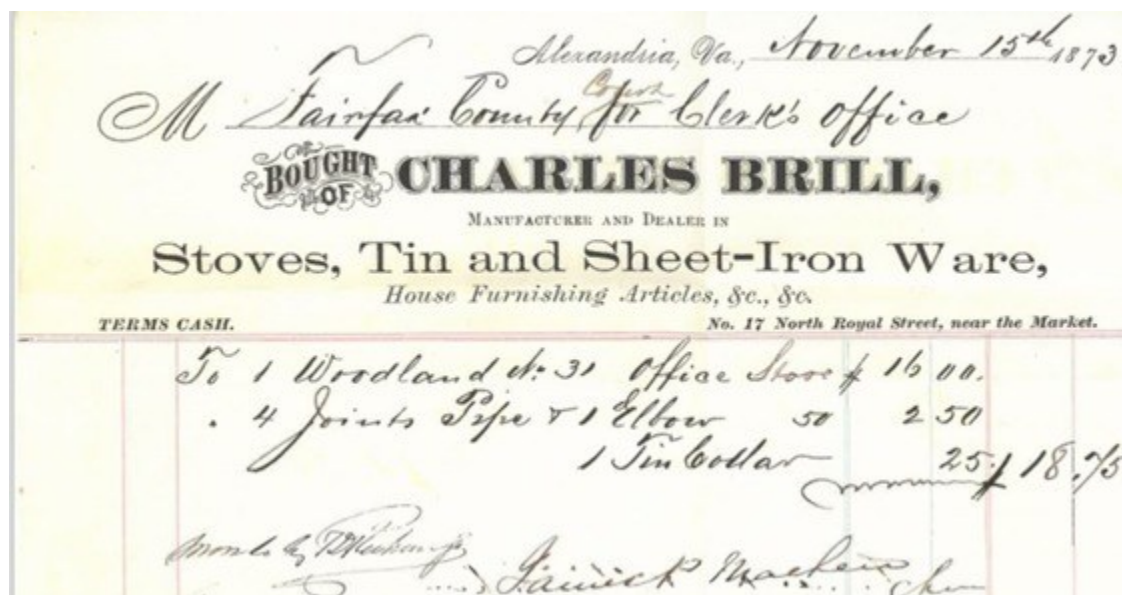 Alexandria, Va., November 15th 1873
Court
M Fairfax County, for Clerk's office
BOUGHT OF CHARLES BRILL,
MANUFACTURER AND DEALER IN
Stoves, Tin and Sheet-Iron Ware,
House Furnishing Articles, &c., &c.
TERMS CASH. No. 17 North Royal Street, near the Market.
To 1 Woodland No 31 Office Stove $ 16 00.
" 4 Joints Pipe & 1 Elbow 50 2 50
1 Tin Collar 25 $ 18.75
by